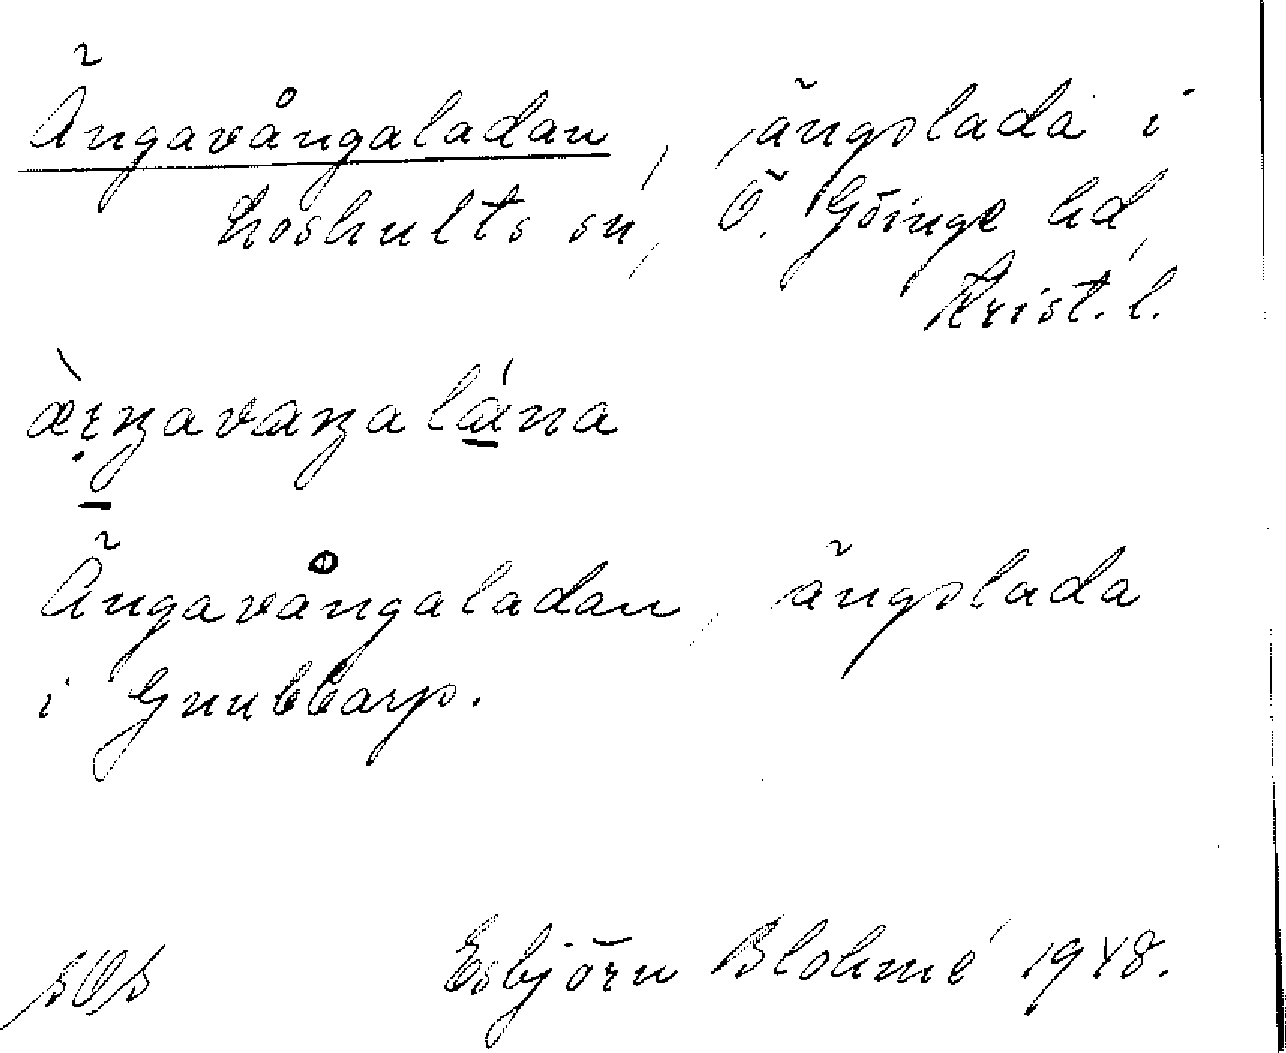 Ängavångaladan, ängslada i
Loshults sn, Ö. Göinge hd,
Krist. l.
Ängavångaladan, ängslada
i Gnubbarp.
Esbjörn Blohmé 1948.